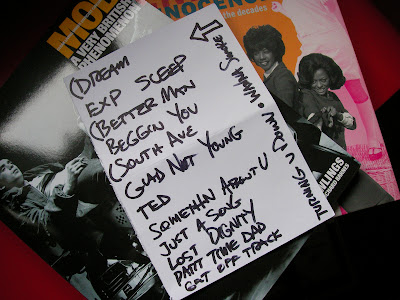 MOD
A VERY BRITISH
PHENOMENON
the decades
(DREAM
EXP SLEEP
(BETTER MAN
BEGGIN YOU
(SOUTH AVE
GLAD NOT YOUNG
TED
SOMETHIN ABOUT U
JUST A SONG
LOST DIGNITY
PART TIME DAD
GET OFF TRACK
TURNING U DOWN • WANNA SMOKE
LINGS